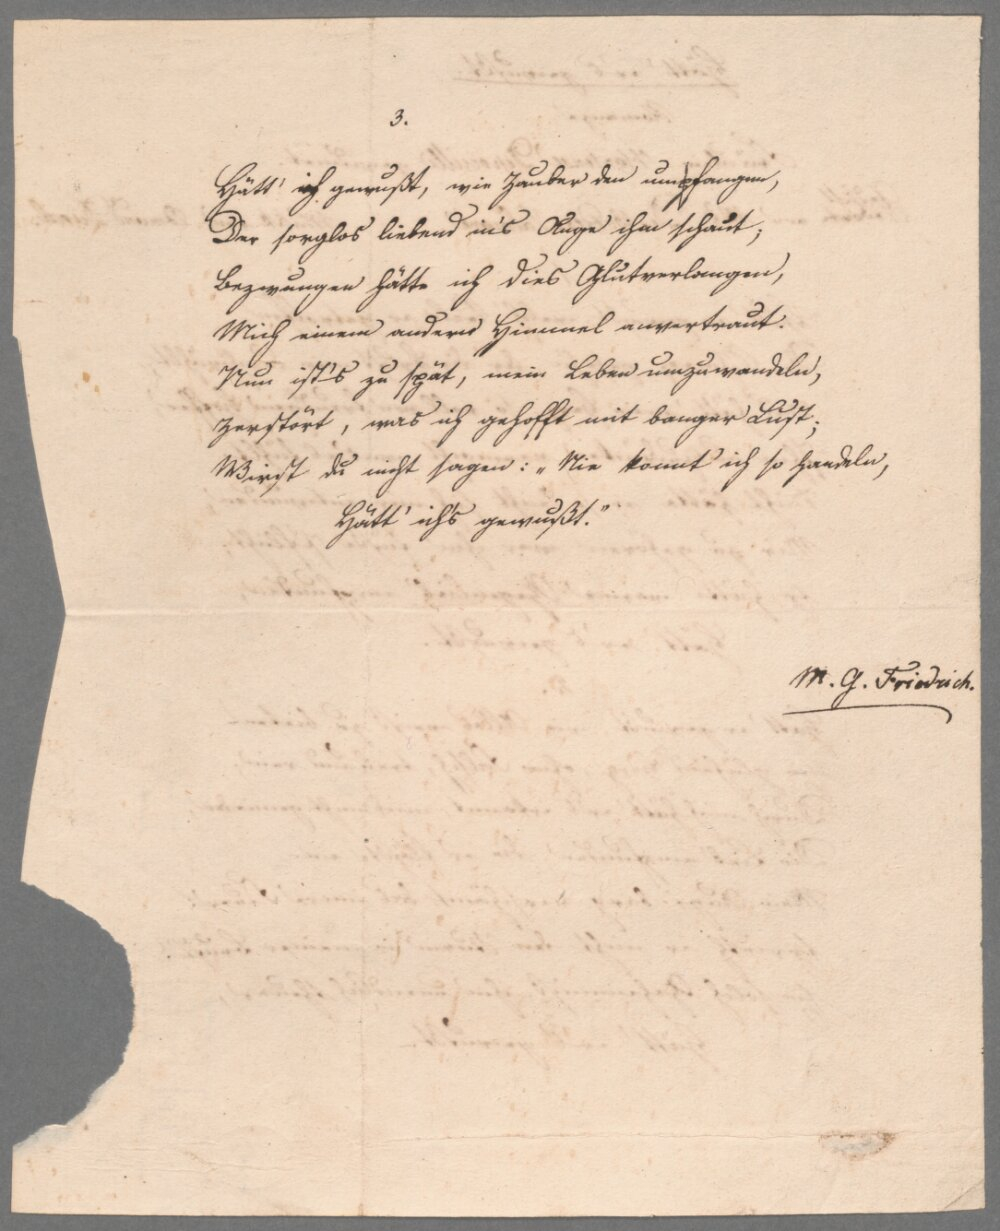 3.
Hätt' ich gewußt, wie Zauber den umpfangen,
Der sorglos liebend in's Auge ihm schaut;
Bezwungen hätte ich dies Glutverlangen,
Mich einem andern Himmel anvertraut.
Nun ist's zu spät, mein Leben umzuwandeln,
Zerstört, was ich gehofft mit banger Lust;
Wirst du nicht sagen: „Nie konnt' ich so handeln,
Hätt' ich's gewußt."
M. G. Friedrich.